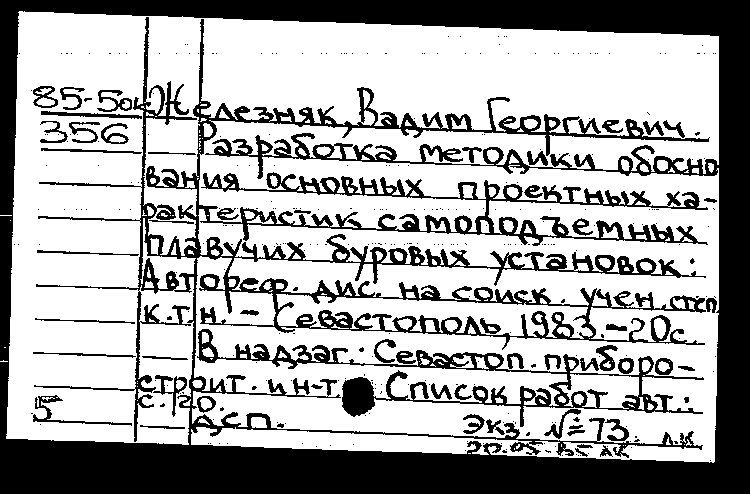 85-5ок Железняк, Вадим Георгиевич.
356 Разработка методики обосно
вания основных проектных ха-
рактеристик самоподъемных
плавучих буровых установок:
Автореф. дис. на соиск. учен. степ
к.т.н. - Севастополь, 1983. - 20с.
В надзаг.: Севастоп. приборо-
строит. ин-т. Список работ авт.:
5 с. 20.
ДСП. Экз. №73. Л.К.